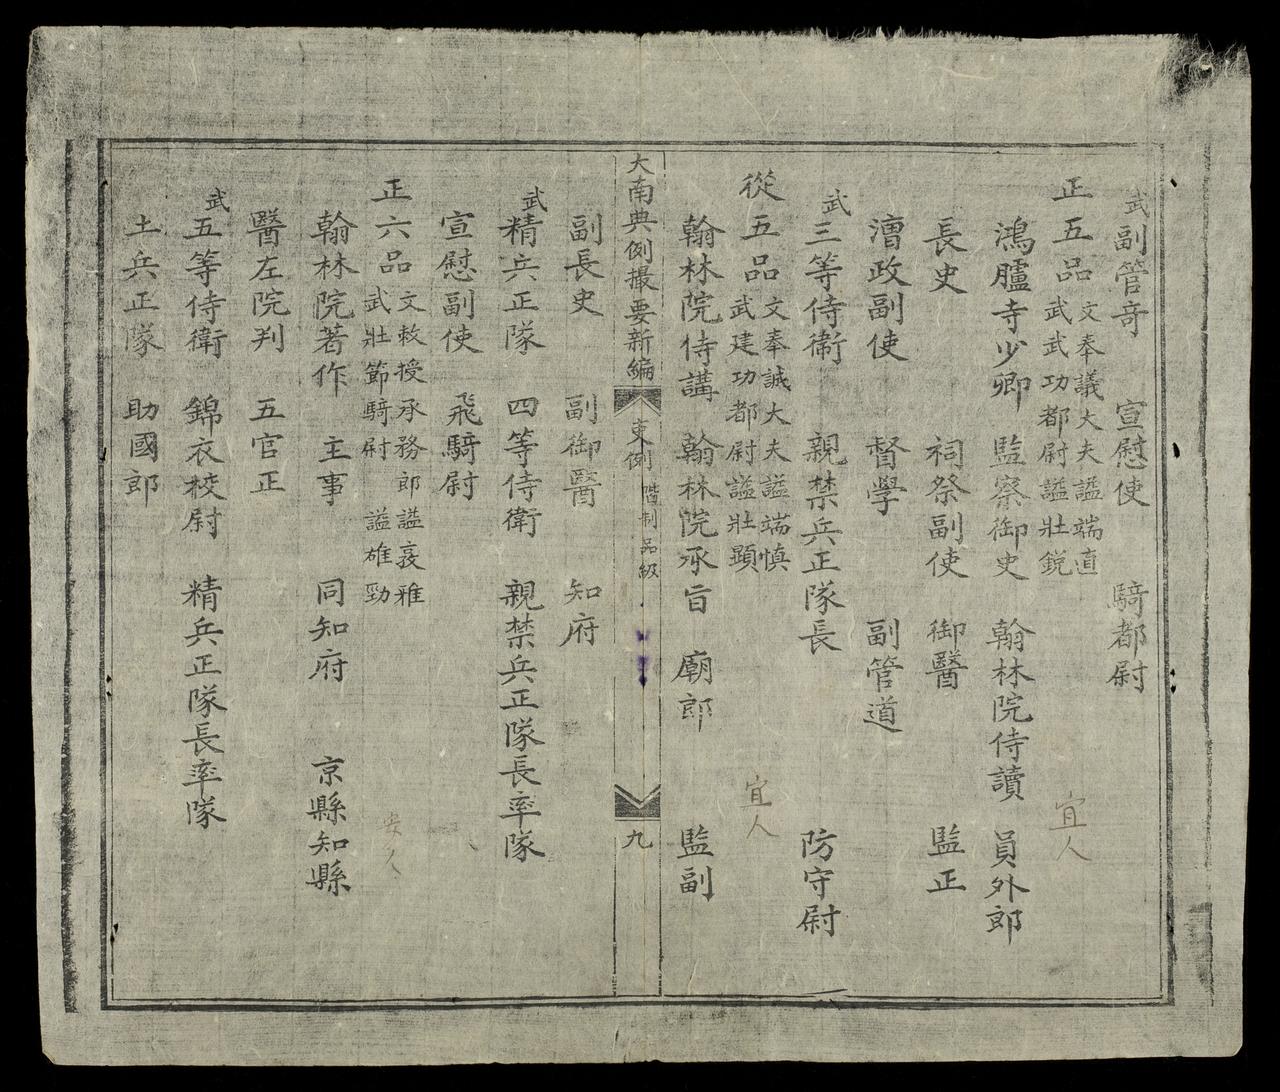 武副管奇 宣慰使 騎都尉
正五品 文奉議大夫謚端直
武武功都尉謚壯銳
宜人
鴻臚寺少卿 監察御史 翰林院侍讀 員外郎
長史 祠祭副使 御醫 監正
漕政副使 督學 副管道
武三等侍衛 親禁兵正隊長 防守尉
從五品 文奉誠大夫謚端慎
武建功都尉謚壯顯
宜人
翰林院侍講 翰林院承旨 廟郎 監副
大南典例撮要新編 吏例 階制品級 九
副長史 副御醫 知府
武精兵正隊 四等侍衛 親禁兵正隊長率隊
宣慰副使 飛騎尉
正六品 文敕授承務郎謚敦雅
武壯節騎尉 謚雄勁
安人
翰林院著作 主事 同知府 京縣知縣
醫左院判 五官正
武五等侍衛 錦衣校尉 精兵正隊長率隊
土兵正隊 助國郎